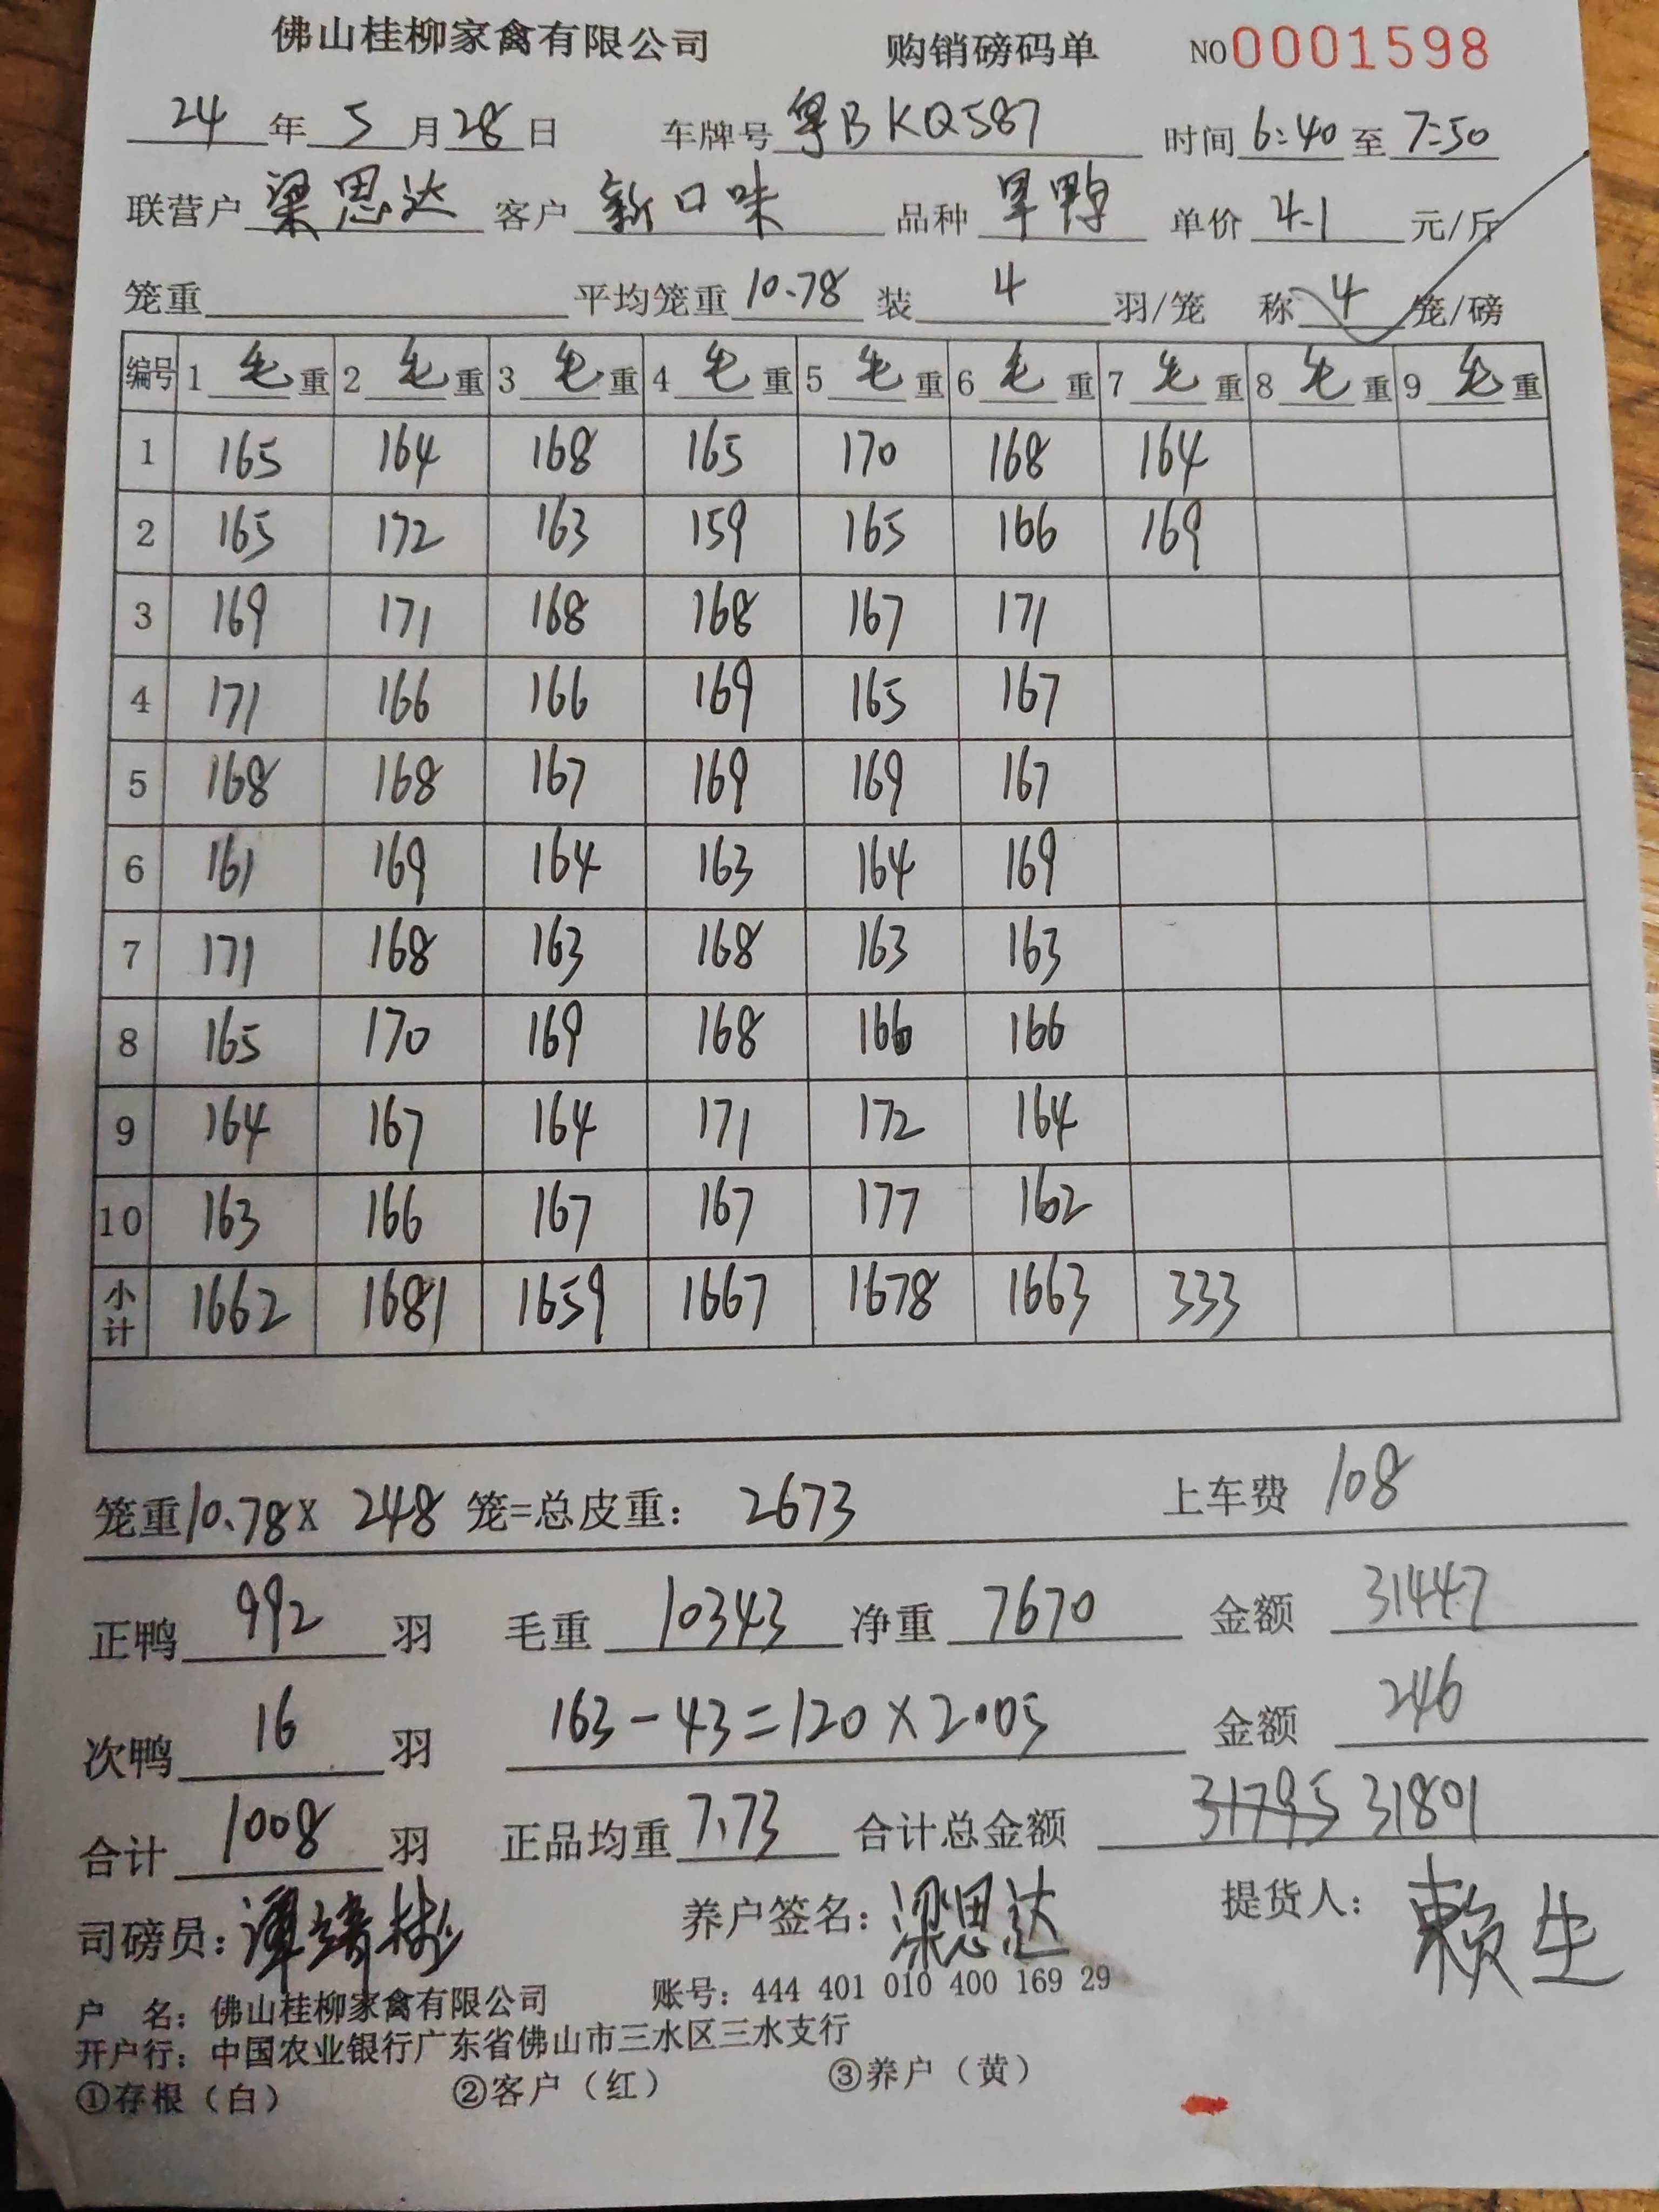 佛山桂柳家禽有限公司 购销磅码单 NO 0001598
24 年 5 月 28 日 车牌号 粤BKQ587 时间 6:40 至 7:50
联营户 梁思达 客户 新口味 品种 旱鸭 单价 4.1 元/斤
笼重 平均笼重 10.78 装 4 羽/笼 称 4 笼/磅
编号 1 毛 重 2 毛 重 3 毛 重 4 毛 重 5 毛 重 6 毛 重 7 毛 重 8 毛 重 9 毛 重
1 165 164 168 165 170 168 164
2 165 172 163 159 165 166 169
3 169 171 168 168 167 171
4 171 166 166 169 165 167
5 168 168 167 169 169 167
6 161 169 164 163 164 169
7 171 168 163 168 163 163
8 165 170 169 168 166 166
9 164 167 164 171 172 164
10 163 166 167 167 177 162
小计 1662 1681 1659 1667 1678 1663 333
笼重 10.78 X 248 笼=总皮重: 2673 上车费 108
正鸭 992 羽 毛重 10343 净重 7670 金额 31447
次鸭 16 羽 163-43=120×2.05 金额 246
合计 1008 羽 正品均重 7.73 合计总金额 31795 31801
司磅员: 谭 彬 养户签名: 梁思达 提货人: 赖生
户 名: 佛山桂柳家禽有限公司 账号: 444 401 010 400 169 29
开户行: 中国农业银行广东省佛山市三水区三水支行
①存根（白） ②客户（红） ③养户（黄）